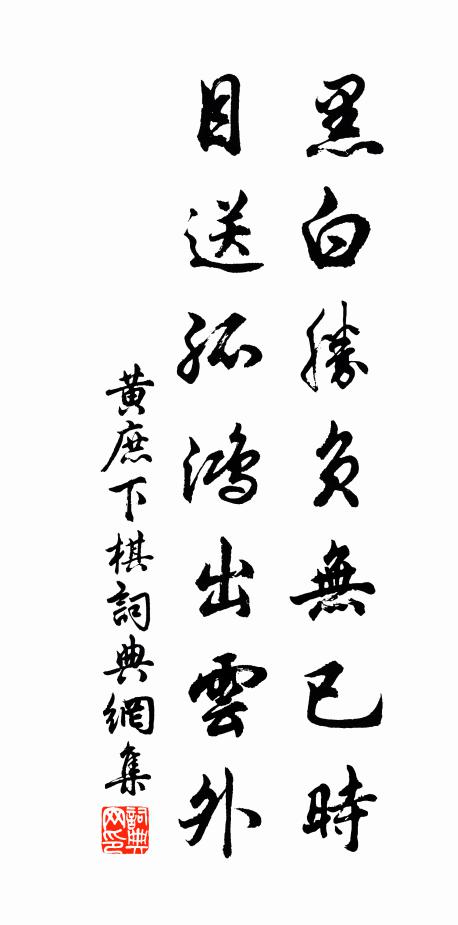 黑白勝負無已時
目送孤鴻出雲外
黄庶下棋詞典網集
詞典网印